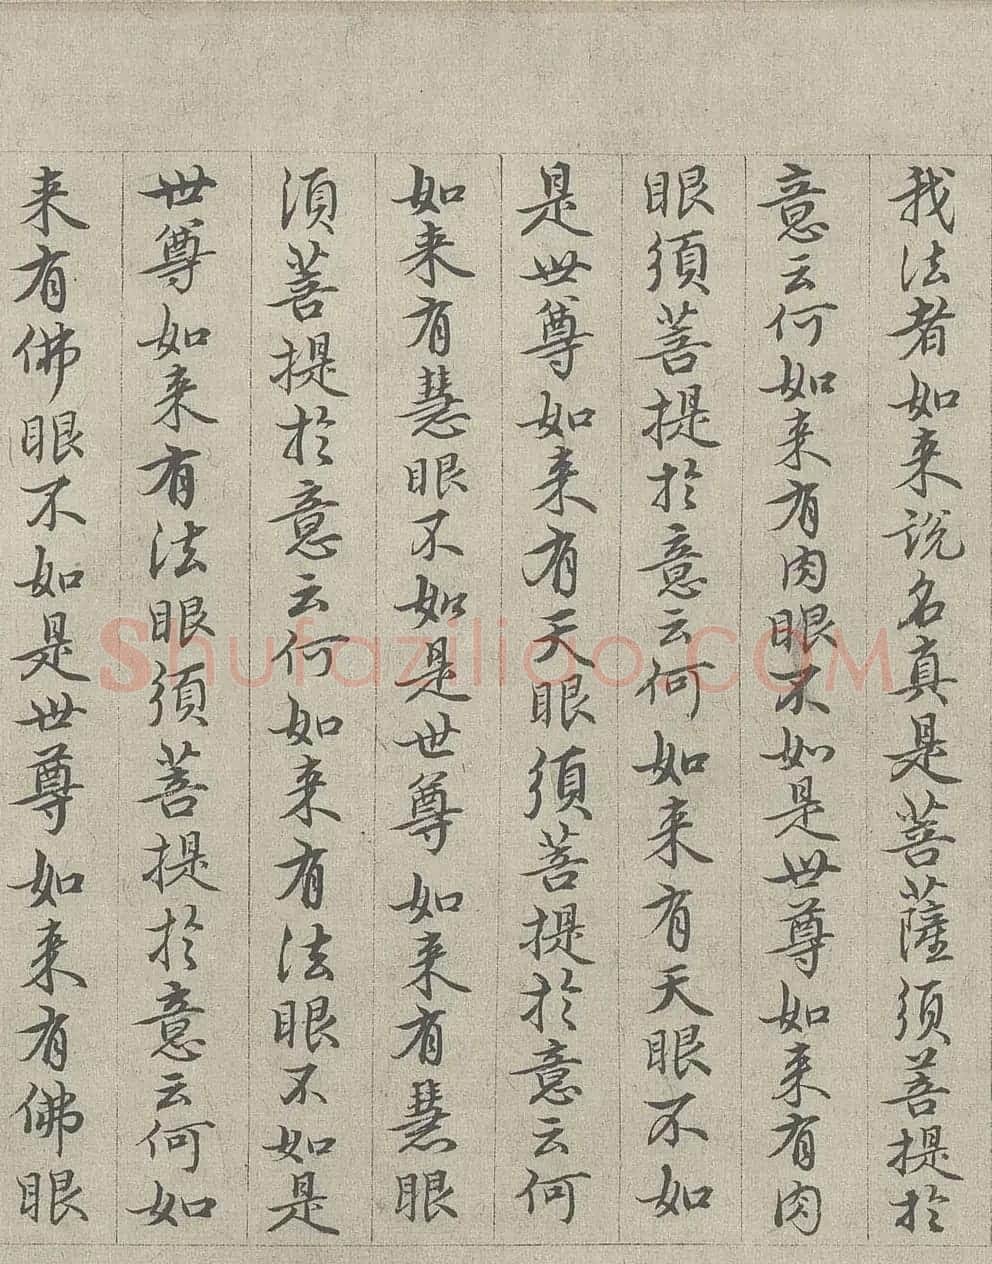 我法者如来说名真是菩薩須菩提於
意云何如来有肉眼不如是世尊如来有肉
眼須菩提於意云何如来有天眼不如
是世尊如来有天眼須菩提於意云何
如来有慧眼不如是世尊如来有慧眼
須菩提於意云何如来有法眼不如是
世尊如来有法眼須菩提於意云何如
来有佛眼不如是世尊如来有佛眼
Shufaziliao.COM